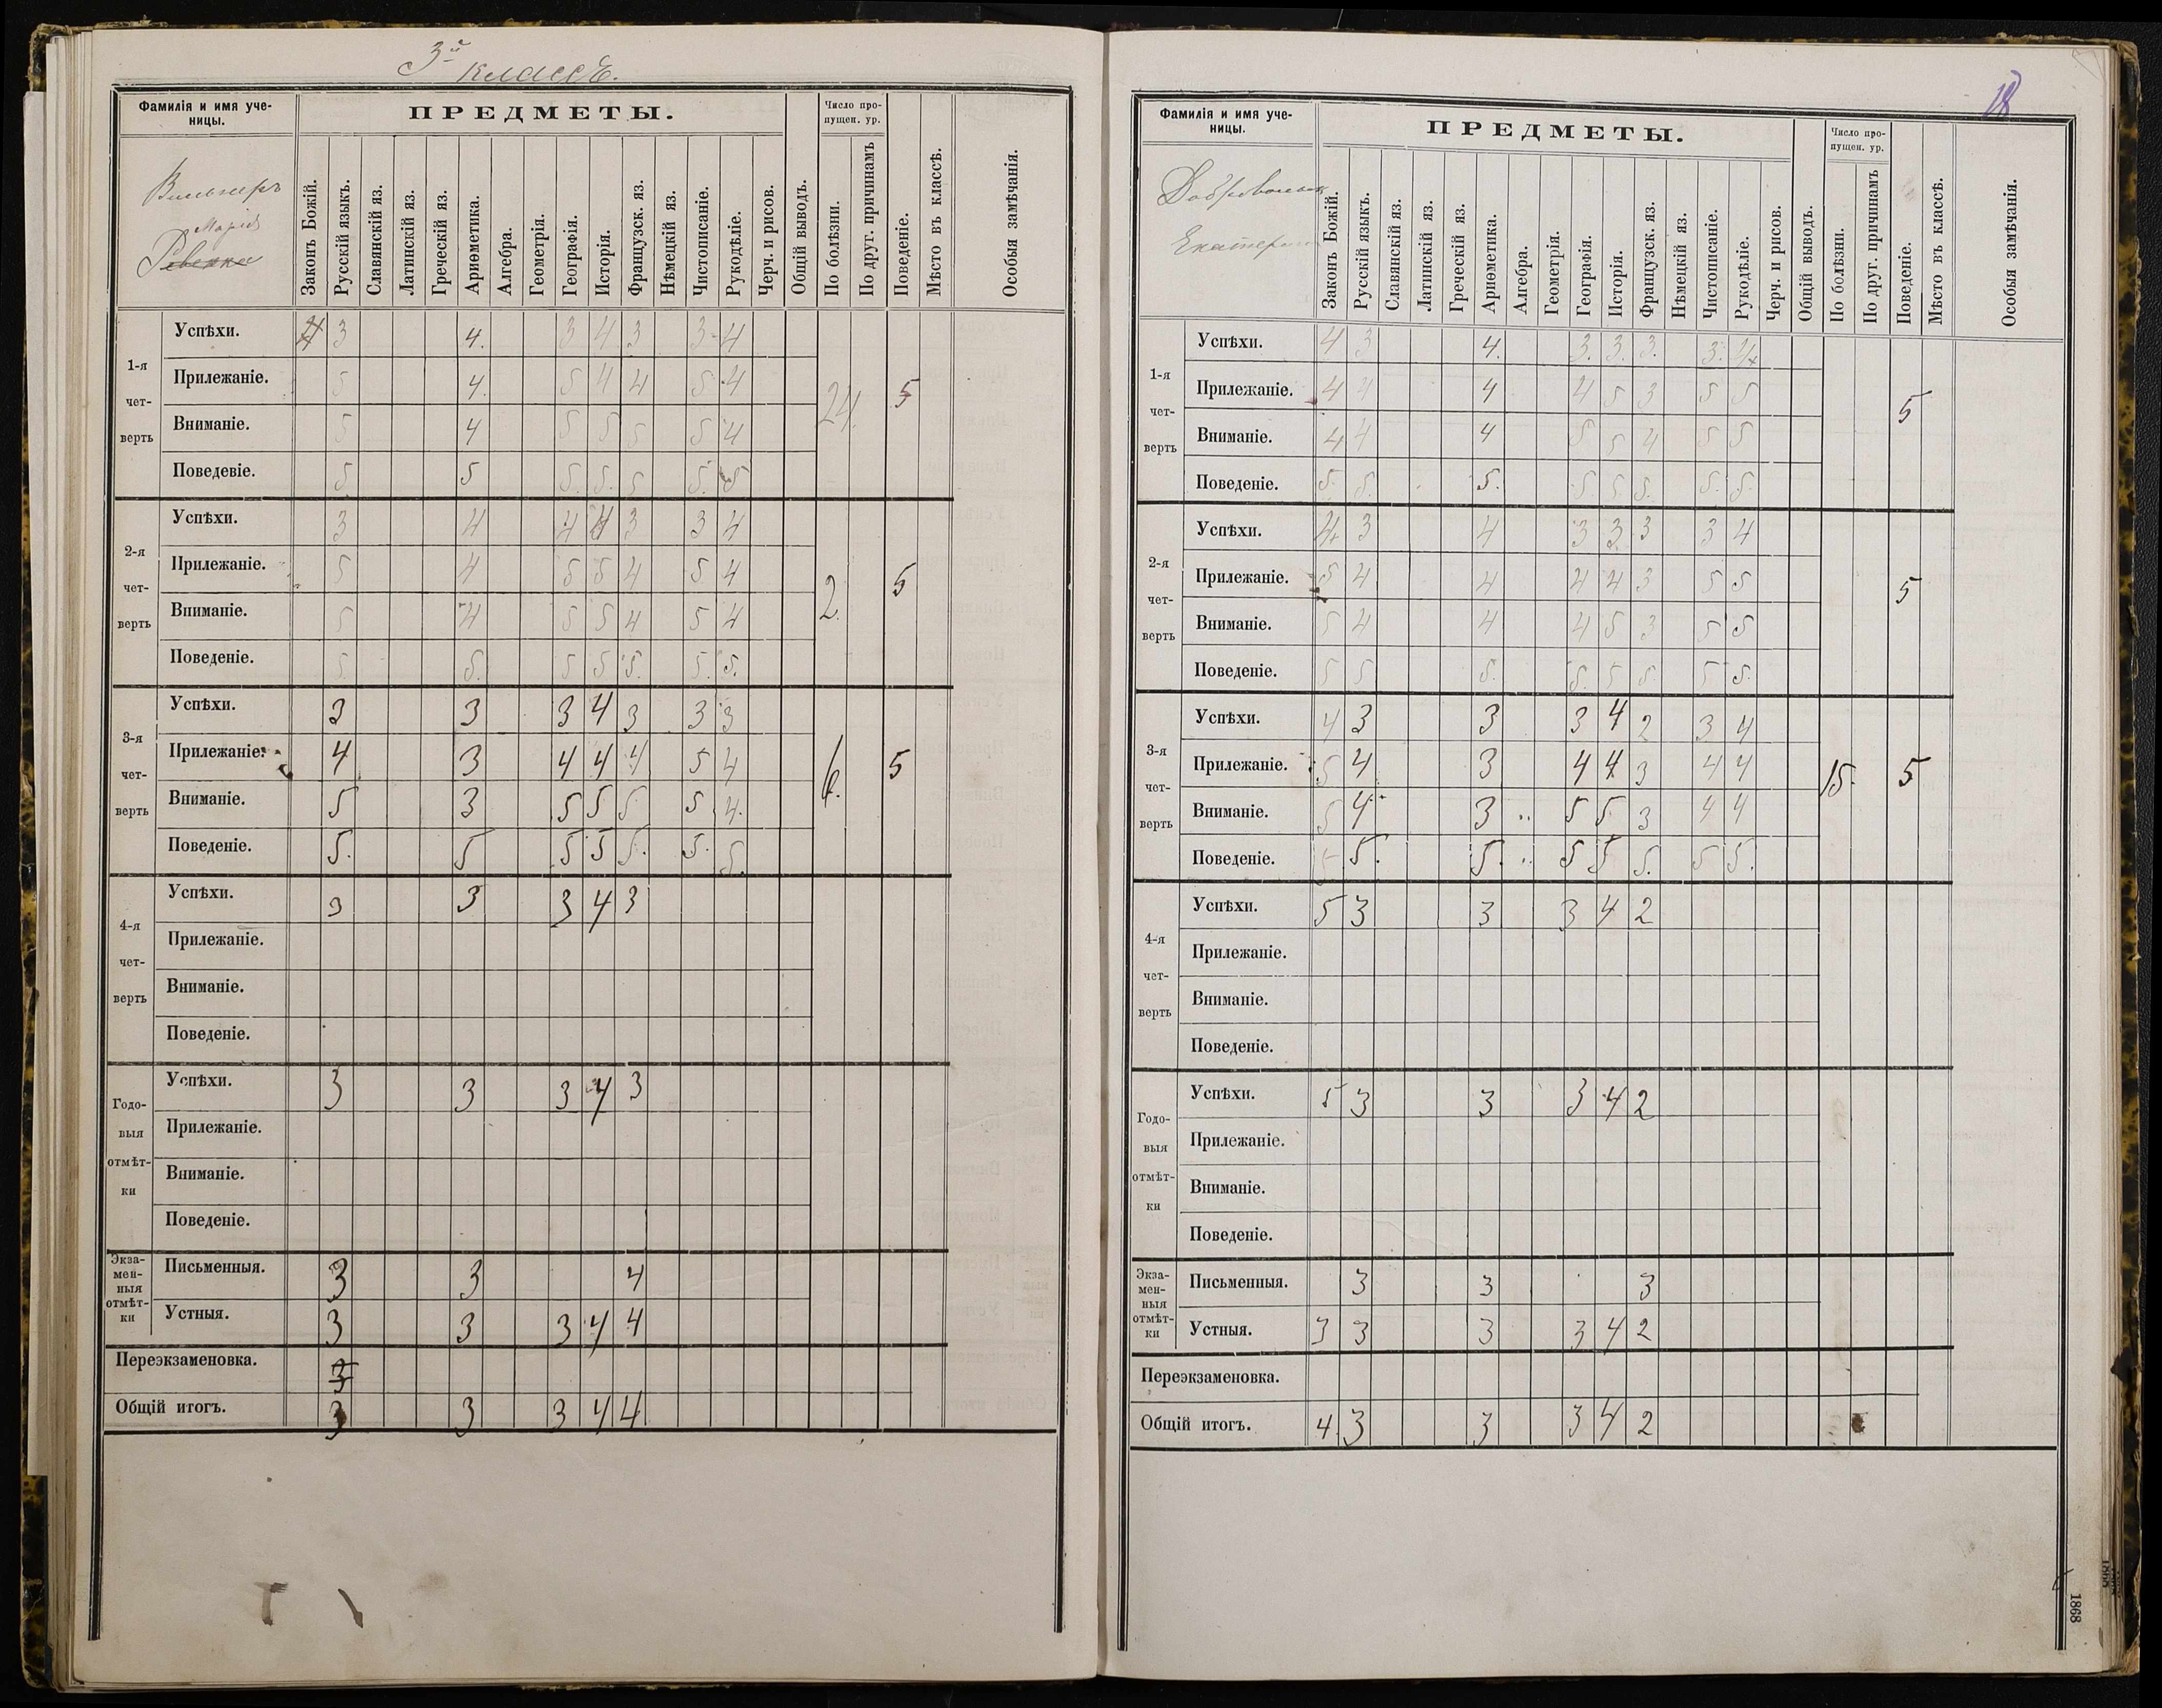 3й классъ.
Фамилія и имя уче-
ницы.
ПРЕДМЕТЫ.
Число про-
пущен. ур.
Вильнеръ
Марія
Ревекка
Законъ Божій.
Русскій языкъ.
Славянскій яз.
Латинскій яз.
Греческій яз.
Ариѳметика.
Алгебра.
Геометрія.
Географія.
Исторія.
Французск. яз.
Нѣмецкій яз.
Чистописаніе.
Рукодѣліе.
Черч. и рисов.
Общій выводъ.
По болѣзни.
По друг. причинамъ
Поведеніе.
Мѣсто въ классѣ.
Особыя замѣчанія.
1-я чет-верть
Успѣхи. 4 3 4. 3 4 3 3 4
Прилежаніе. 5 4. 5 4 4 5 4
24. 5
Вниманіе. 5 4 5 5 5 5 4
Поведевіе. 5. 5 5. 5. 5 5. 5
2-я чет-верть
Успѣхи. 3 4 4 4 3 3 4
Прилежаніе. 5 4 5 5 4 5 4
2. 5
Вниманіе. 5 4 5 5 4 5 4
Поведеніе. 5 5. 5 5 5. 5. 5.
3-я чет-верть
Успѣхи. 3 3 3 4 3 3 3
Прилежаніе. 4 3 4 4 4 5 4
6. 5
Вниманіе. 5 3 5 5 5 5 4.
Поведеніе. 5. 5 5 5 5. 5. 5.
4-я чет-верть
Успѣхи. 3 3 3 4 3
Прилежаніе.
Вниманіе.
Поведеніе.
Годо-выя отмѣт-ки
Успѣхи. 3 3 3 4 3
Прилежаніе.
Вниманіе.
Поведеніе.
Экза-мен-ныя отмѣт-ки
Письменныя. 3 3 4
Устныя. 3 3 3 4 4
Переэкзаменовка. 3
Общій итогъ. 3 3 3 4 4
18
Фамилія и имя уче-
ницы.
ПРЕДМЕТЫ.
Число про-
пущен. ур.
Законъ Божій.
Русскій языкъ.
Славянскій яз.
Латинскій яз.
Греческій яз.
Ариѳметика.
Алгебра.
Геометрія.
Географія.
Исторія.
Французск. яз.
Нѣмецкій яз.
Чистописаніе.
Рукодѣліе.
Черч. и рисов.
Общій выводъ.
По болѣзни.
По друг. причинамъ
Поведеніе.
Мѣсто въ классѣ.
Особыя замѣчанія.
1-я чет-верть
Успѣхи. 4 3 4. 3. 3. 3. 3. 4
Прилежаніе. 4 4 4 4 5 3 5 5
5
Вниманіе. 4 4 4 5 5 4 5 5
Поведеніе. 5. 5. 5. 5 5 5. 5. 5.
2-я чет-верть
Успѣхи. 4 3 4 3 3 3 3 4
Прилежаніе. 5 4 4 4 4 3 5 5
5
Вниманіе. 5 4 4 4 5 3 5 5
Поведеніе. 5 5 5. 5. 5 5 5 5.
3-я чет-верть
Успѣхи. 4 3 3 3 4 2 3 4
Прилежаніе. 5 4 3 4 4 3 4 4
15. 5
Вниманіе. 5 4 3 5 5 3 4 4
Поведеніе. 5 5. 5. 5 5 5. 5 5.
4-я чет-верть
Успѣхи. 5 3 3 3 4 2
Прилежаніе.
Вниманіе.
Поведеніе.
Годо-выя отмѣт-ки
Успѣхи. 5 3 3 3 4 2
Прилежаніе.
Вниманіе.
Поведеніе.
Экза-мен-ныя отмѣт-ки
Письменныя. 3 3 3
Устныя. 3 3 3 3 4 2
Переэкзаменовка.
Общій итогъ. 4. 3 3 3 4 2
1868